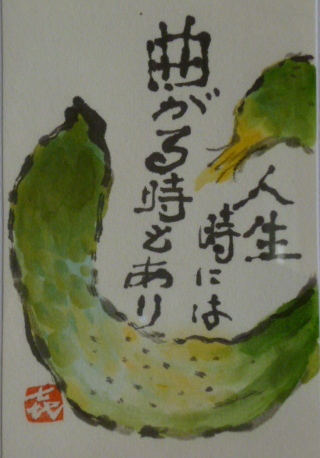 人生
時には
曲がる時もあり